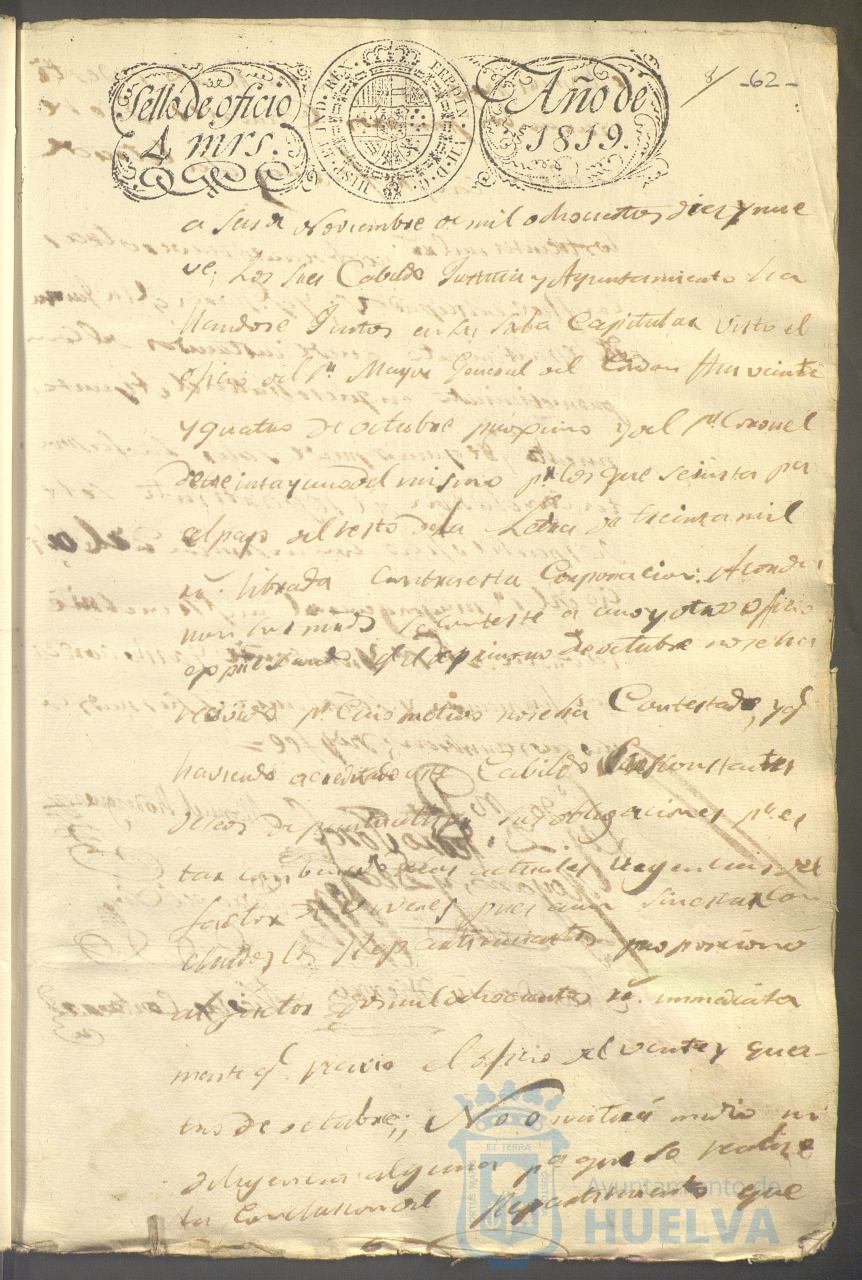 Sello de oficio
4 mrs.
HISP. ET IND. REX. FERDIN. VII. D. G.
Año de
1819.
8/ -62-
a seis de Noviembre de mil ochocientos diez y nue
ve; Los Sres Cabildo Justicia y Ayuntamiento ha
llandose Juntos en la Sala Capitular visto el
oficio del Sr. Mayor General del fha veinte
y quatro de octubre proximo y del Sr. Coronel
de treinta y uno del mismo pr. los que se insta por
el pago del resto de la Letra de treinta mil
rs. librada contra esta Corporacion: Acorda
ron sus mrds se conteste a uno y otro oficio
que el de primero de octubre no se ha
recivido pr. cuio motivo no se ha Contestado, y q.
haviendo acreditado este Cabildo sus constantes
deseos de sus obligaciones pr. es
tar las actuales urgencias del
factor de viveres pues aun sin estar con
cluidos los Repartimientos proporcionó
dos mil ochocientos rs. inmediata
mente q. recivio el oficio del veinte y quar-
tro de octubre; No omitirá medio ni
diligencia alguna pa. que se realize
la Conclusion del Repartimiento que
ET TERRÆ
Ayuntamiento de
HUELVA